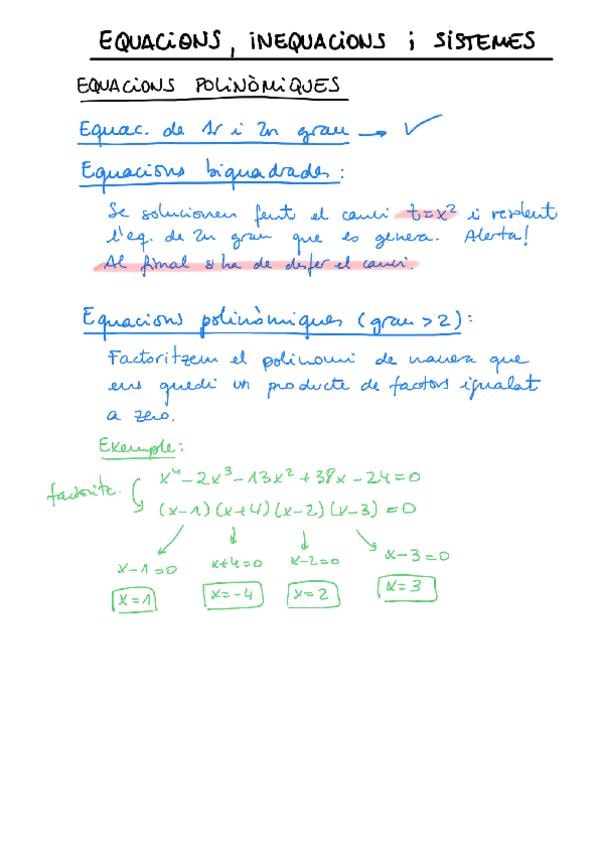 EQUACIONS, INEQUACIONS i SISTEMES
EQUACIONS POLINÒMIQUES
Equac. de 1r i 2n grau → ✓
Equacions biquadrades:
Se solucionen fent el canvi t=x² i resolent
l'eq. de 2n grau que es genera. Alerta!
Al final s'ha de desfer el canvi.
Equacions polinòmiques (grau > 2):
Factoritzem el polinomi de manera que
ens quedi un producte de factors igualat
a zero.
Exemple:
x⁴ - 2x³ - 13x² + 38x - 24 = 0
factoritz.
(x-1)(x+4)(x-2)(x-3) = 0
x-1=0 x+4=0 x-2=0 x-3=0
x=1 x=-4 x=2 x=3